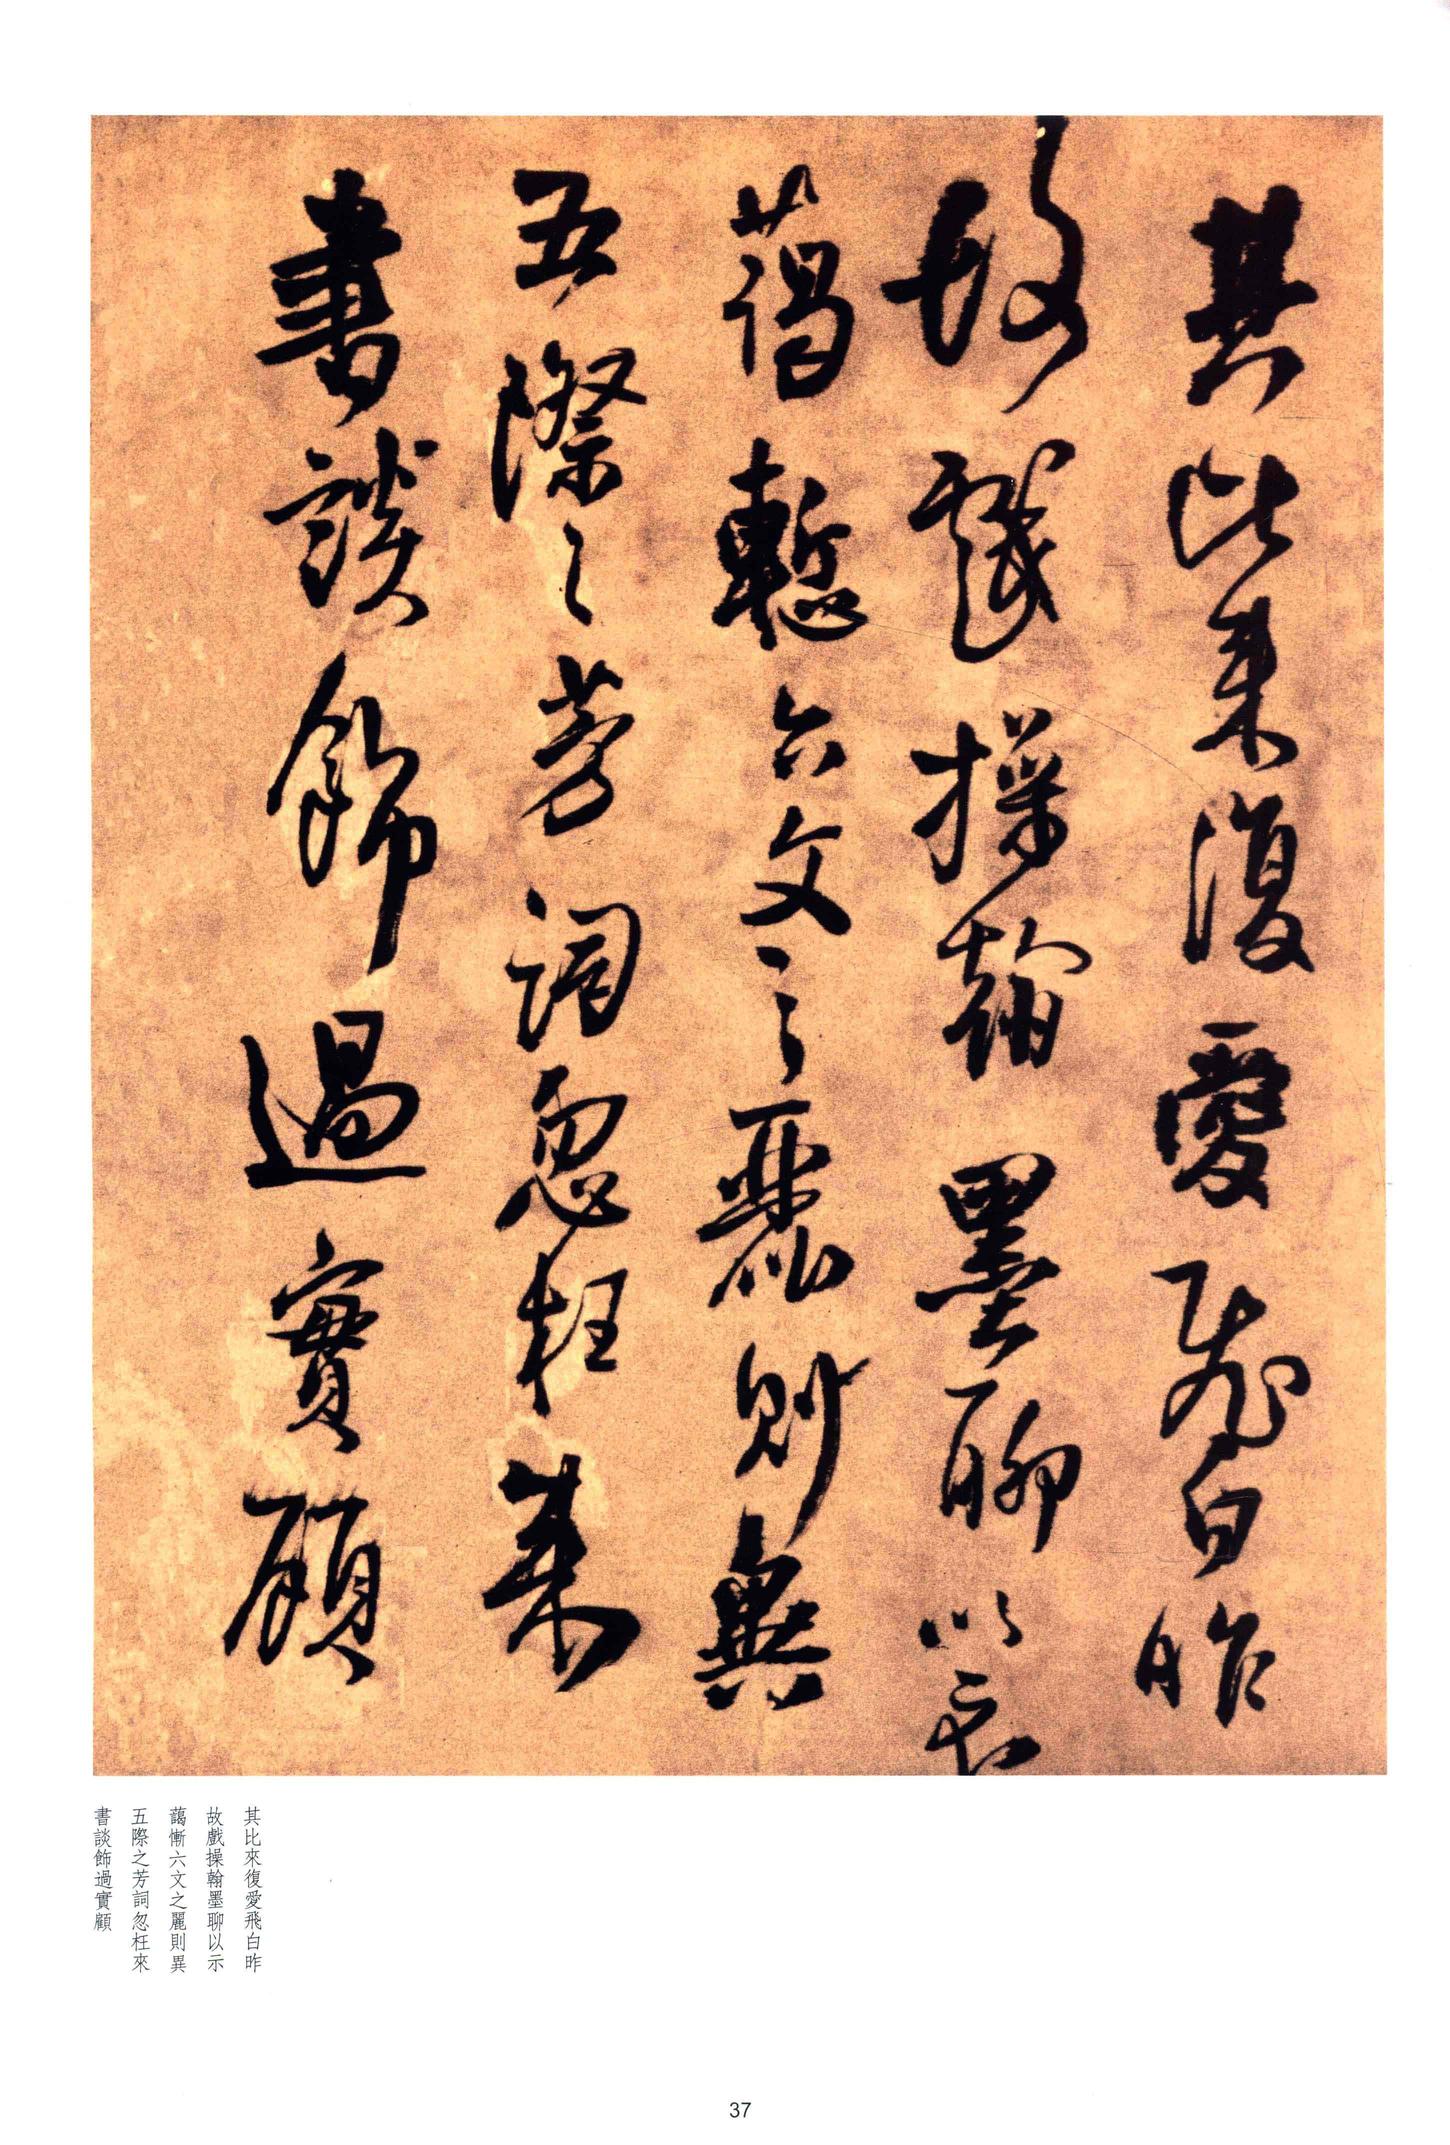 其比来復愛飛白昨
故戲操翰墨聊以示
藹慙六文之麗則異
五際之芳詞忽枉来
書談飾過實顧
其比來復愛飛白昨
故戲操翰墨聊以示
藹慚六文之麗則異
五際之芳詞忽枉來
書談飾過實顧
37